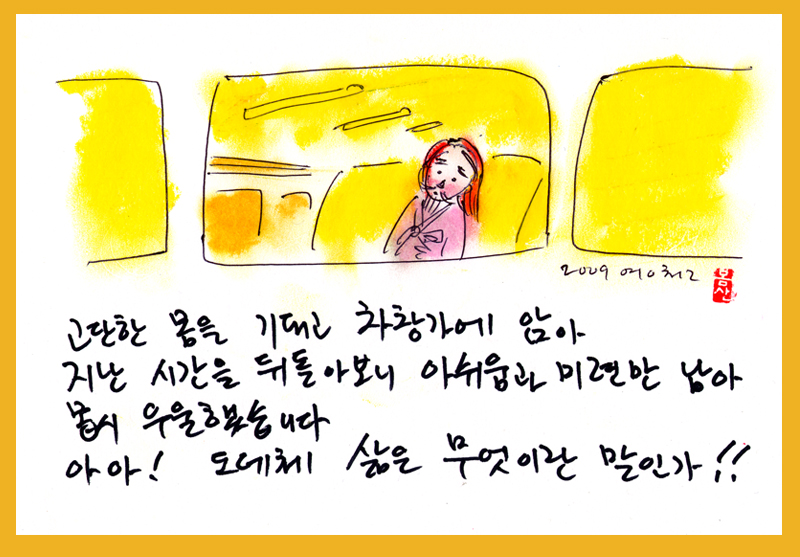 2009 여이처ㄹ
봄산
고단한 몸을 기대고 차창가에 앉아
지난 시간을 뒤돌아보니 아쉬움과 미련만 남아
몹시 우울했습니다
아아! 도데체 삶은 무엇이란 말인가!!